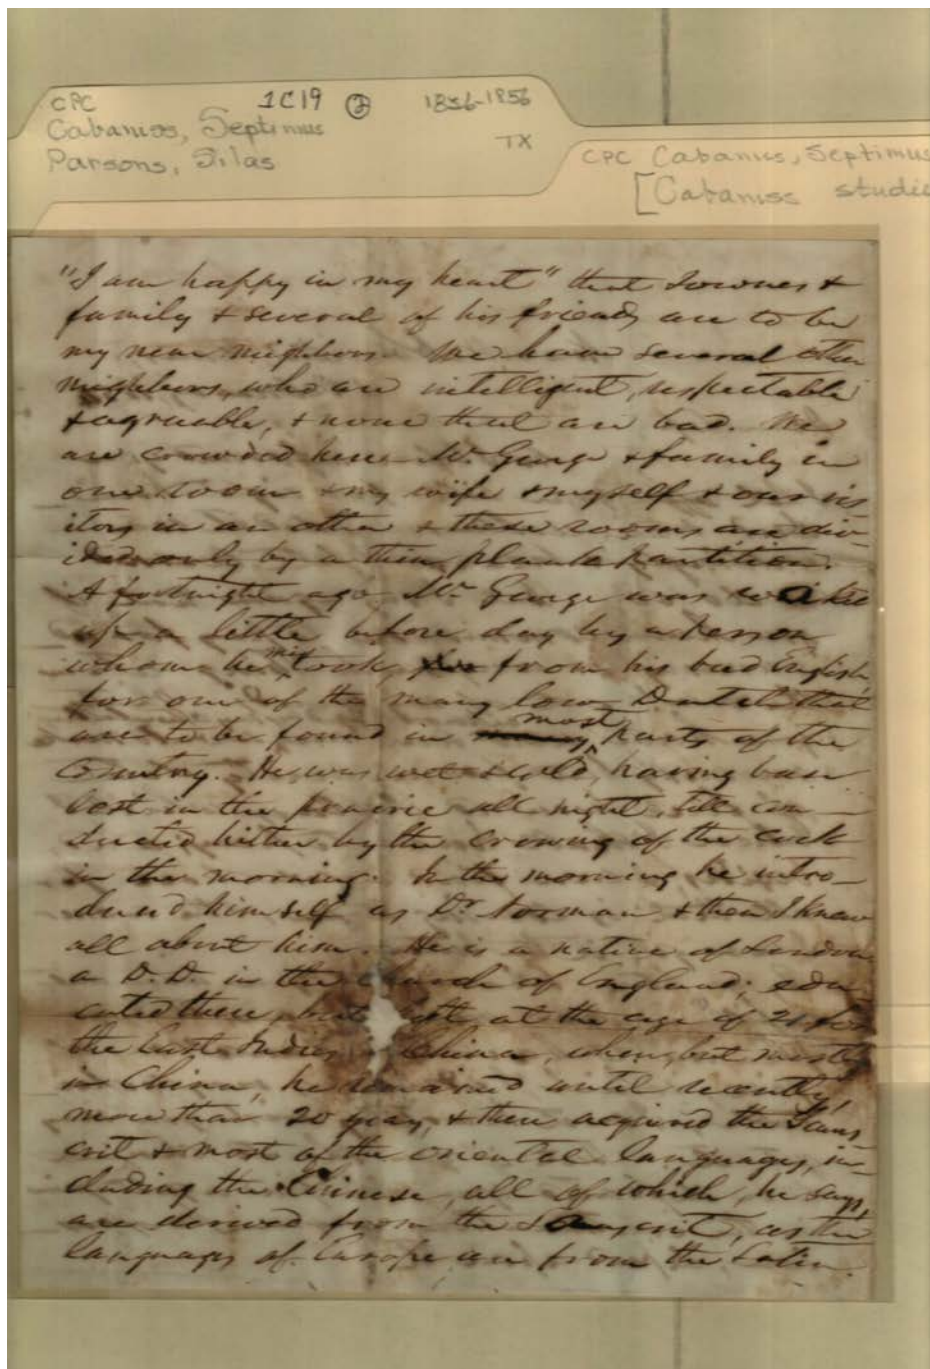 CPC 1C19 ② 1836-1856
Cabaniss, Septimus
TX
Parsons, Silas
CPC Cabaniss, Septimus
[Cabaniss studie
"I am happy in my heart" that Townes &
family & several of his friends are to be
my near neighbors. We have several other
neighbors, who are intelligent, respectable
& agreeable, & none that are bad. We
are crowded here - Mr. George & family in
one room & my wife & myself & our vis
itors in an other & these rooms are div-
ided only by a thin plank partition.
A fortnight ago Mr. George was waked
up a little before day by a person
whom he mistook, from his bad English,
for one of the many low Dutch that
are to be found in most parts of the
Country. He was wet & cold, having been
lost in the prairie all night, till con-
ducted hither by the crowing of the cock
in the morning. In the morning he intro-
duced himself as Dr. Norman & then I knew
all about him. He is a native of London,
a D.D. in the Church of England; edu
cated there, but left at the age of 21 for
the East Indies & China, where, but mostly
in China, he remained until recently,
more than 20 years, & then acquired the Sans
crit & most of the oriental languages, in-
cluding the Chinese, all of which, he says,
are derived from the Sanscrit, as the
languages of Europe are from the Latin.